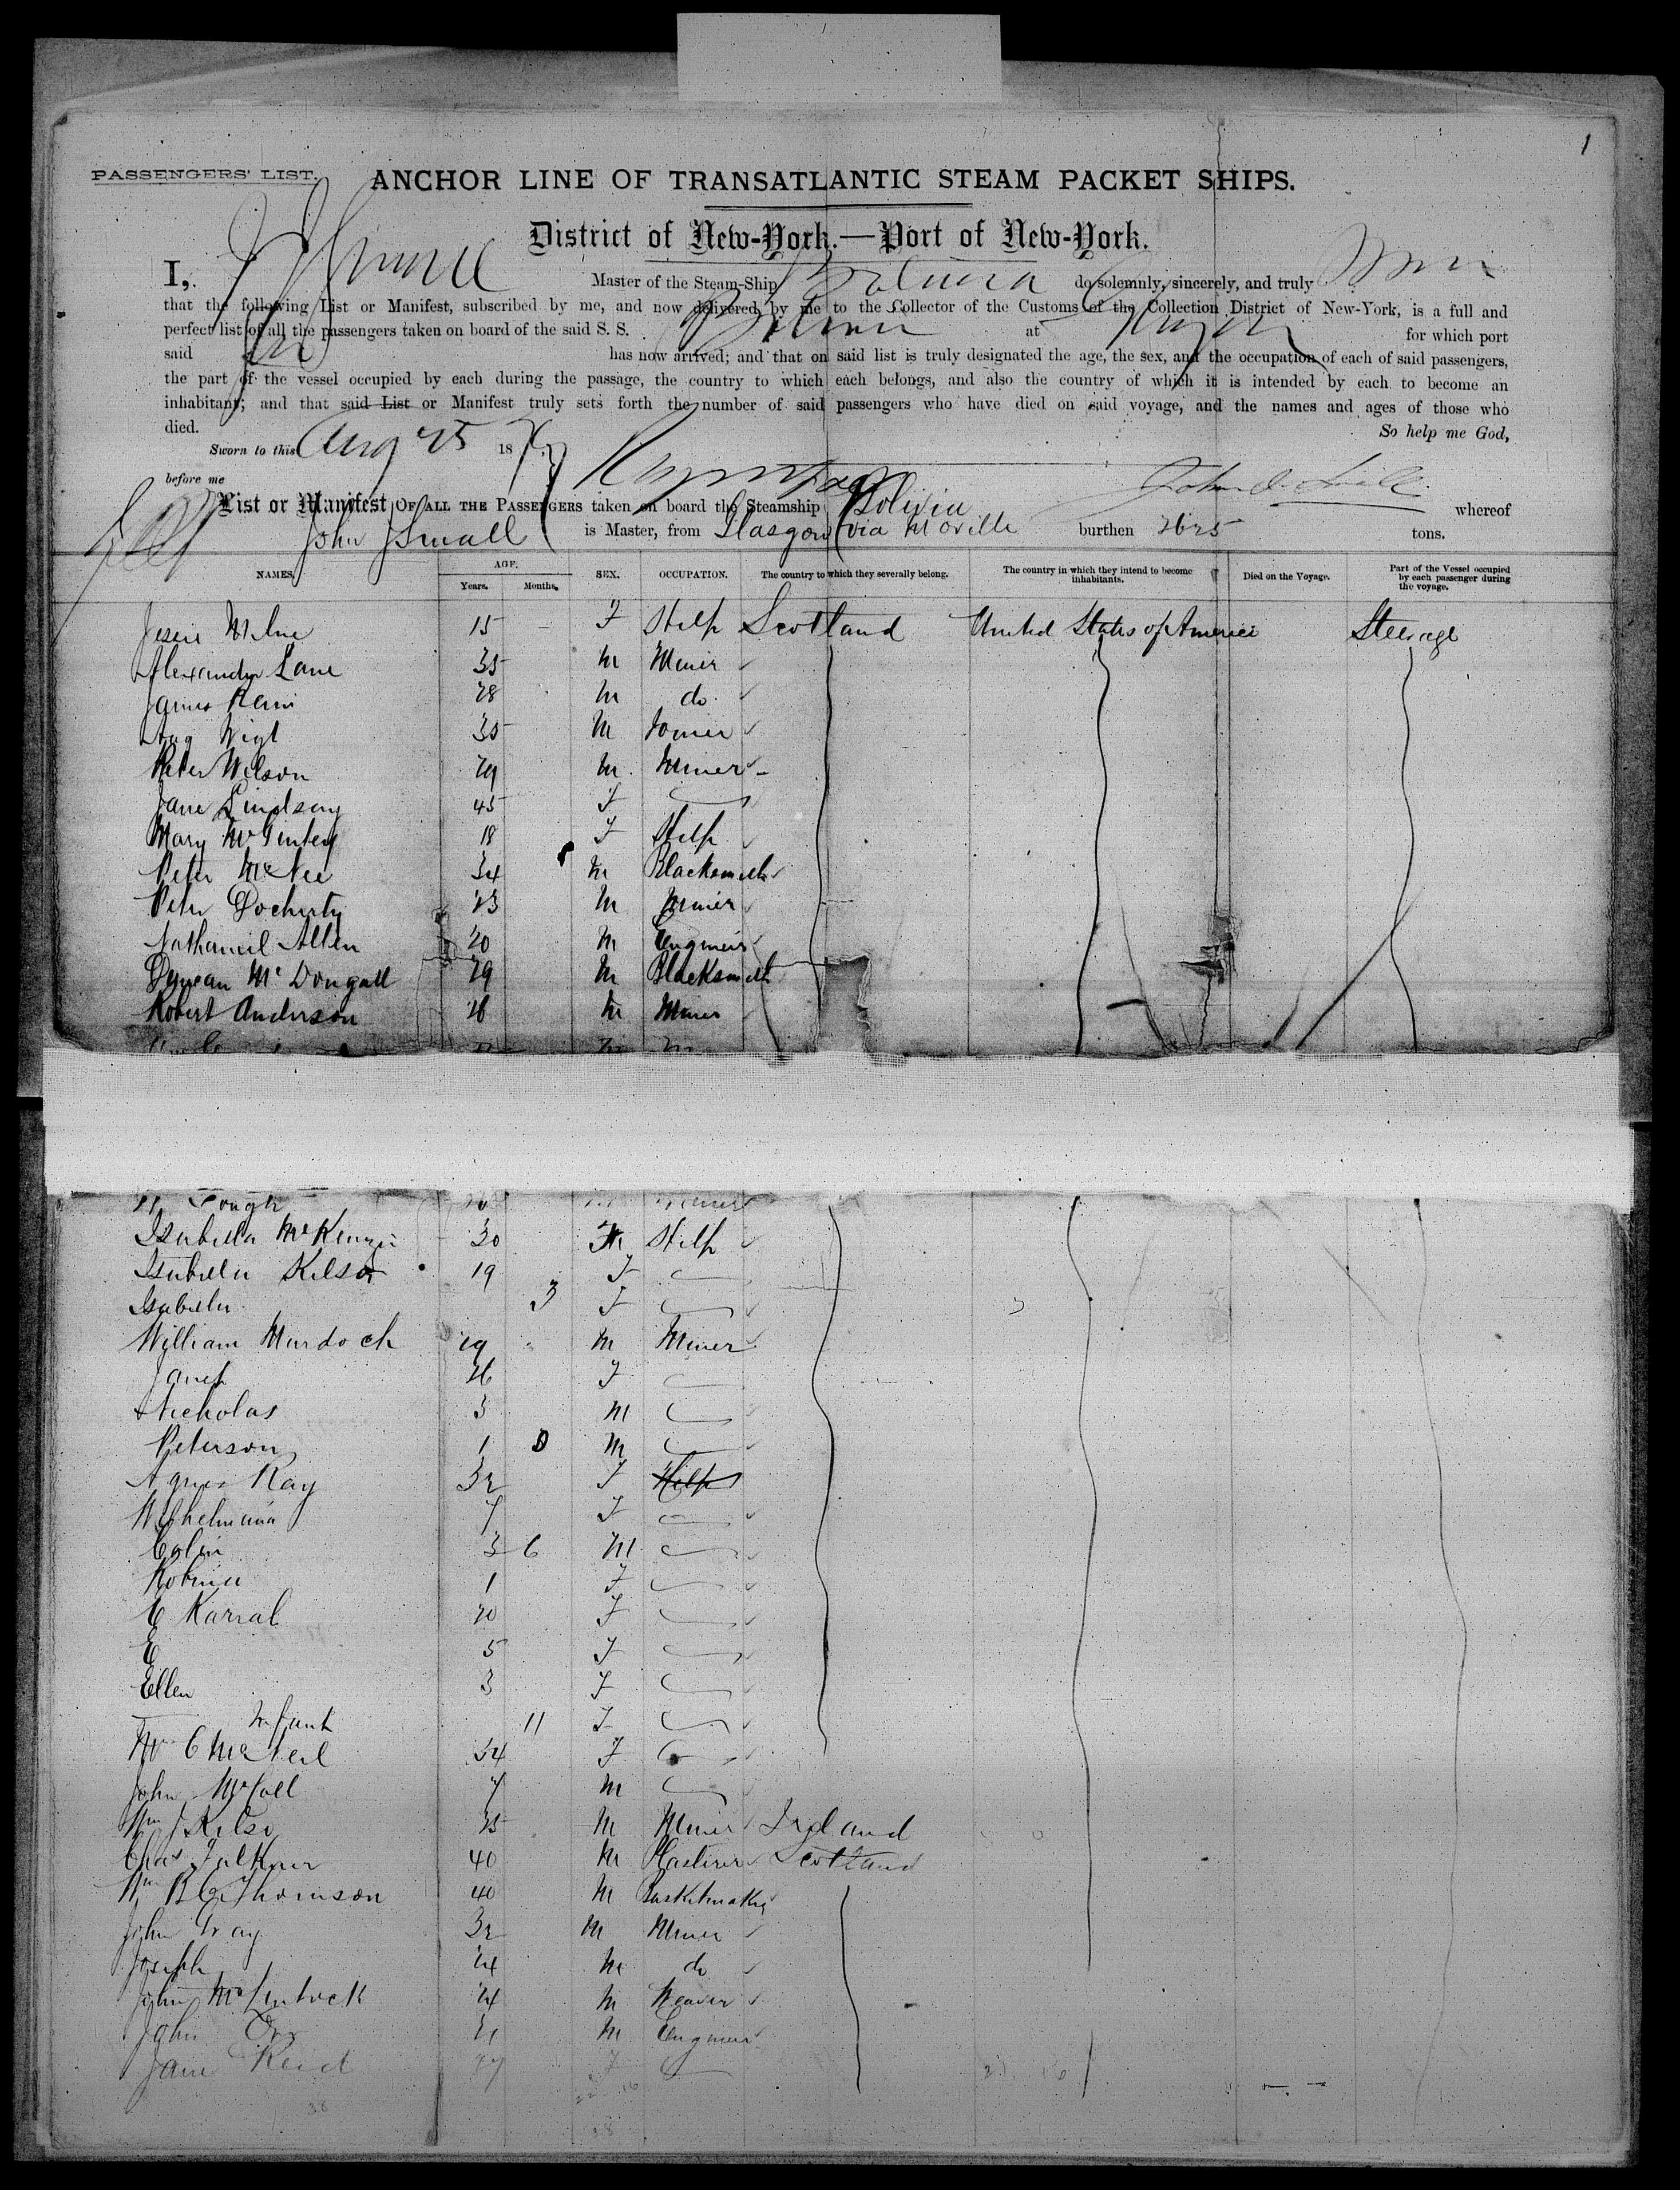 1
PASSENGERS' LIST.
ANCHOR LINE OF TRANSATLANTIC STEAM PACKET SHIPS.
District of New-York.—Port of New-York.
I, J Small Master of the Steam-Ship Bolivia do solemnly, sincerely, and truly
that the following List or Manifest, subscribed by me, and now delivered by me to the Collector of the Customs of the Collection District of New-York, is a full and
perfect list of all the passengers taken on board of the said S. S. Bolivia at Glasgow for which port
said has now arrived; and that on said list is truly designated the age, the sex, and the occupation of each of said passengers,
the part of the vessel occupied by each during the passage, the country to which each belongs, and also the country of which it is intended by each to become an
inhabitant; and that said List or Manifest truly sets forth the number of said passengers who have died on said voyage, and the names and ages of those who
died. So help me God,
Sworn to this Aug 25 187
before me
List or Manifest OF ALL THE PASSENGERS taken on board the Steamship Bolivia whereof
John Small is Master, from Glasgow via Moville burthen 2625 tons.
NAMES. AGE. Years. Months. SEX. OCCUPATION. The country to which they severally belong. The country in which they intend to become inhabitants. Died on the Voyage. Part of the Vessel occupied by each passenger during the voyage.
Jessie Milne 15 F Help Scotland United States of America Steerage
Alexander Lane 35 M Miner
James 28 M do
35 M Joiner
Peter Wilson 29 M Miner
Jane Lindsay 45 F
Mary McGinley 18 F Help
Peter McNee 34 M Blacksmith
Peter Docherty 23 M Miner
Nathaniel Allen 20 M Engineer
Duncan McDougall 29 M Blacksmith
Robert Anderson 26 M Miner
M
Gough M Miner
Isabella McKenzie 30 F Help
Isabella Kelso 19 F
Isabella 3 F
William Murdoch 29 M Miner
Janet 26 F
Nicholas 3 M
Peterson 1 8 M
Agnes Kay 32 F Help
Wilhelmina 7 F
Colin 3 6 M
Robina 1 F
E Karral 30 F
E 5 F
Ellen 3 F
Infant 11 F
C McNeil 34 F
John McCall 7 M
Wm J Kelso 25 M Miner Ireland
Chas Falkner 40 M Plasterer Scotland
Wm B C Thomson 40 M Basketmaker
John Gray 32 M Miner
Joseph 24 M do
John McLintock 24 M Weaver
John Orr 21 M Engineer
Jane Reid 27 F